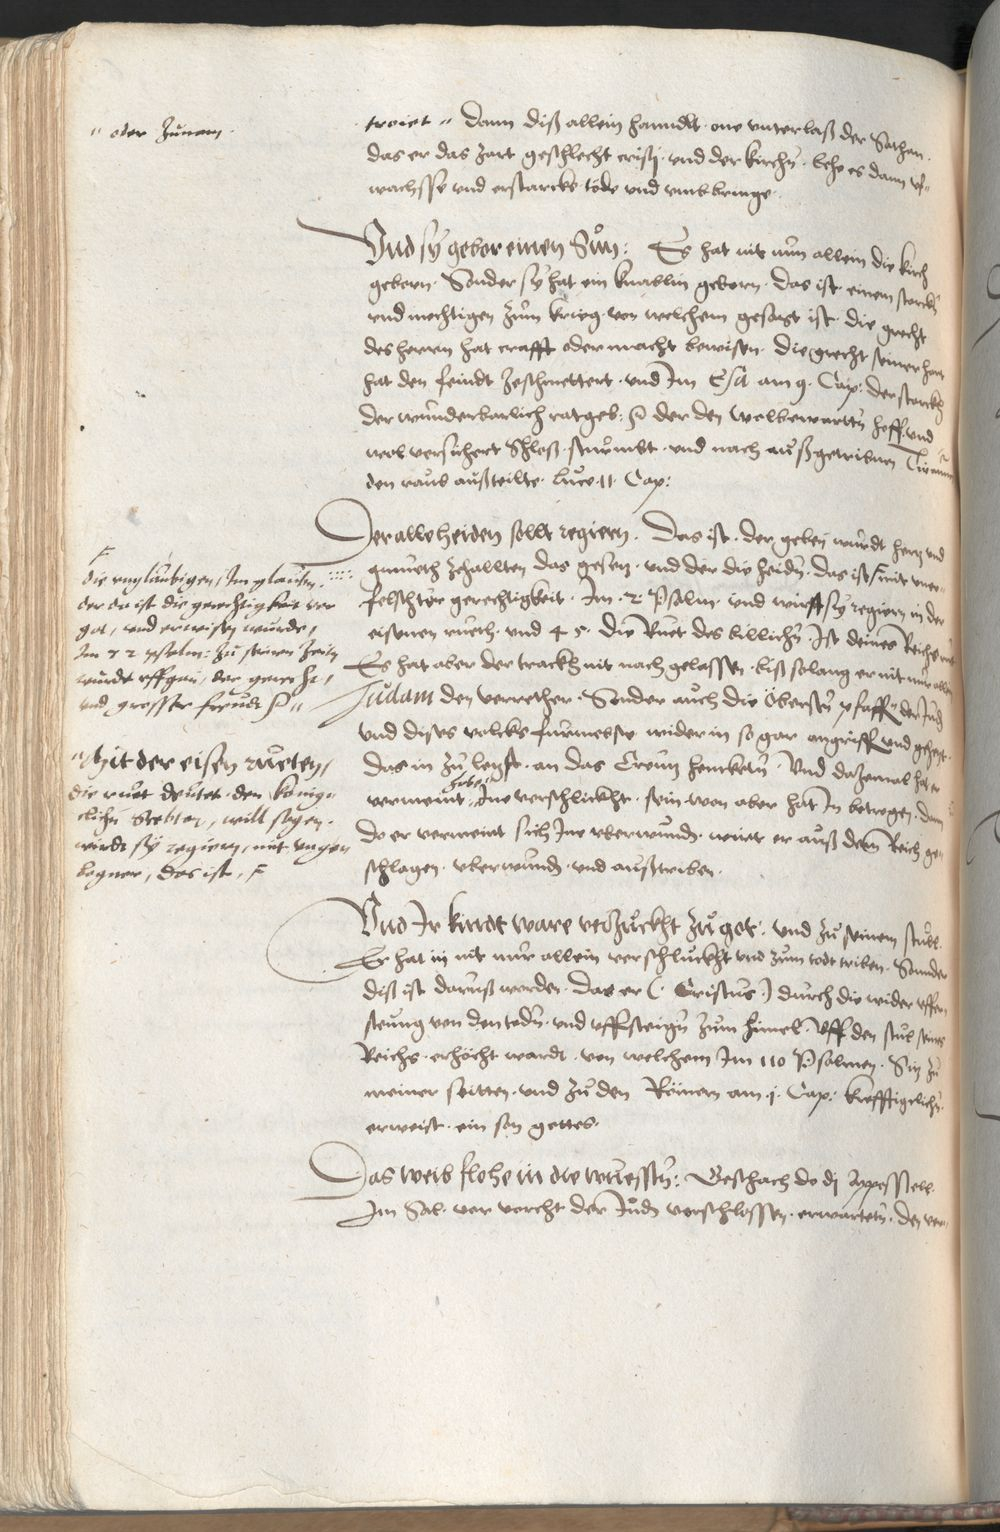 " oder zunam.
treiet " Dann diß allein handlt one unterlaß der Sathan.
das er das zart geschlecht cristj. und der kirchen. lehe es dann uf-
wachsse und erstarcke tode und umbbringe.
Und sy gebor einen Sůn: Es hat nit nun allein die kirch
geborn. Sonder sy hat ein knablin geborn. das ist einem starcken
und mechtigen zum krieg. von welchem gesagt ist. die grecht
des herrn hat crafft oder macht bewisen. die grecht seiner hant
hat den feindt zeschmettert. und Im Esa am 9. Cap: der starcke
der wunderbarlich ratgeb. der den wolbewarten hoff. und
wol versichert Schloß. sturmbt. und nach außgetribnen Tirannen
den raub außteilte. luce 11. Cap:
Der alle heiden sollt regiern. Das ist. der geben wurdt hertz und
gmueth zehallten das gesetz. und der die heiden. das ist F mit unuer-
felschter gerechtigkeit. Im. 2. Psalm. und wirst sy regiern in der
eisenen rueth. und 45. Die Ruet des billichen. Ist deines Reichs
Es hat aber der track nit nach gelassen. biß solang er nit nur allein
Judam den verrether. Sonder auch die Obersten pfaffen der Jud
und dises volcks furnemste wider in so gar angriff und gehetzt.
das in zu letzst. an das Creutz hencketen. Und dazemal hat er
verment, Ine verschlickht. sein won aber hat In betrogen. dann
do er verment sich Ine uberwunden. wirt er auß dem Reich ge-
schlagen. uberwunden. und außtriben.
F
die unglaubigen, Im glauben.
der da ist die gerechtigkeit vor
got, und erwisen wurdt,
Im 72 psalm: zu seinen zeiten
wurdt uffgan, der gerecht,
und grosser freudt
" Mit der eisen rueten,
die ruet deutet den konig-
clichen Stebter, will sagen.
wirdt sy regiern, mit ungen
bogner, das ist, F
Und Ir kindt ware verzuckht zů got. und zů seinem stuel.
Er hat in nit nur allein verschluckht und zum todt triben. Sunder
diß ist daruß worden. das er (Cristus) durch die wider uffer-
steung von den todten. und uffsteigen zum himel. Uff den stul seines
Reichs. erhöcht wardt. von welchem Im 110 Psalmen. Sitz zu
meiner seitten. und zů den Römern am. j. Cap: krefftigelichen
erweist. ein son gottes.
Das weib flohe in die wuessten: Beschach do dj Appostell.
Im Sal. vor vorcht der Juden verschlossen. erwarteten. den ver-